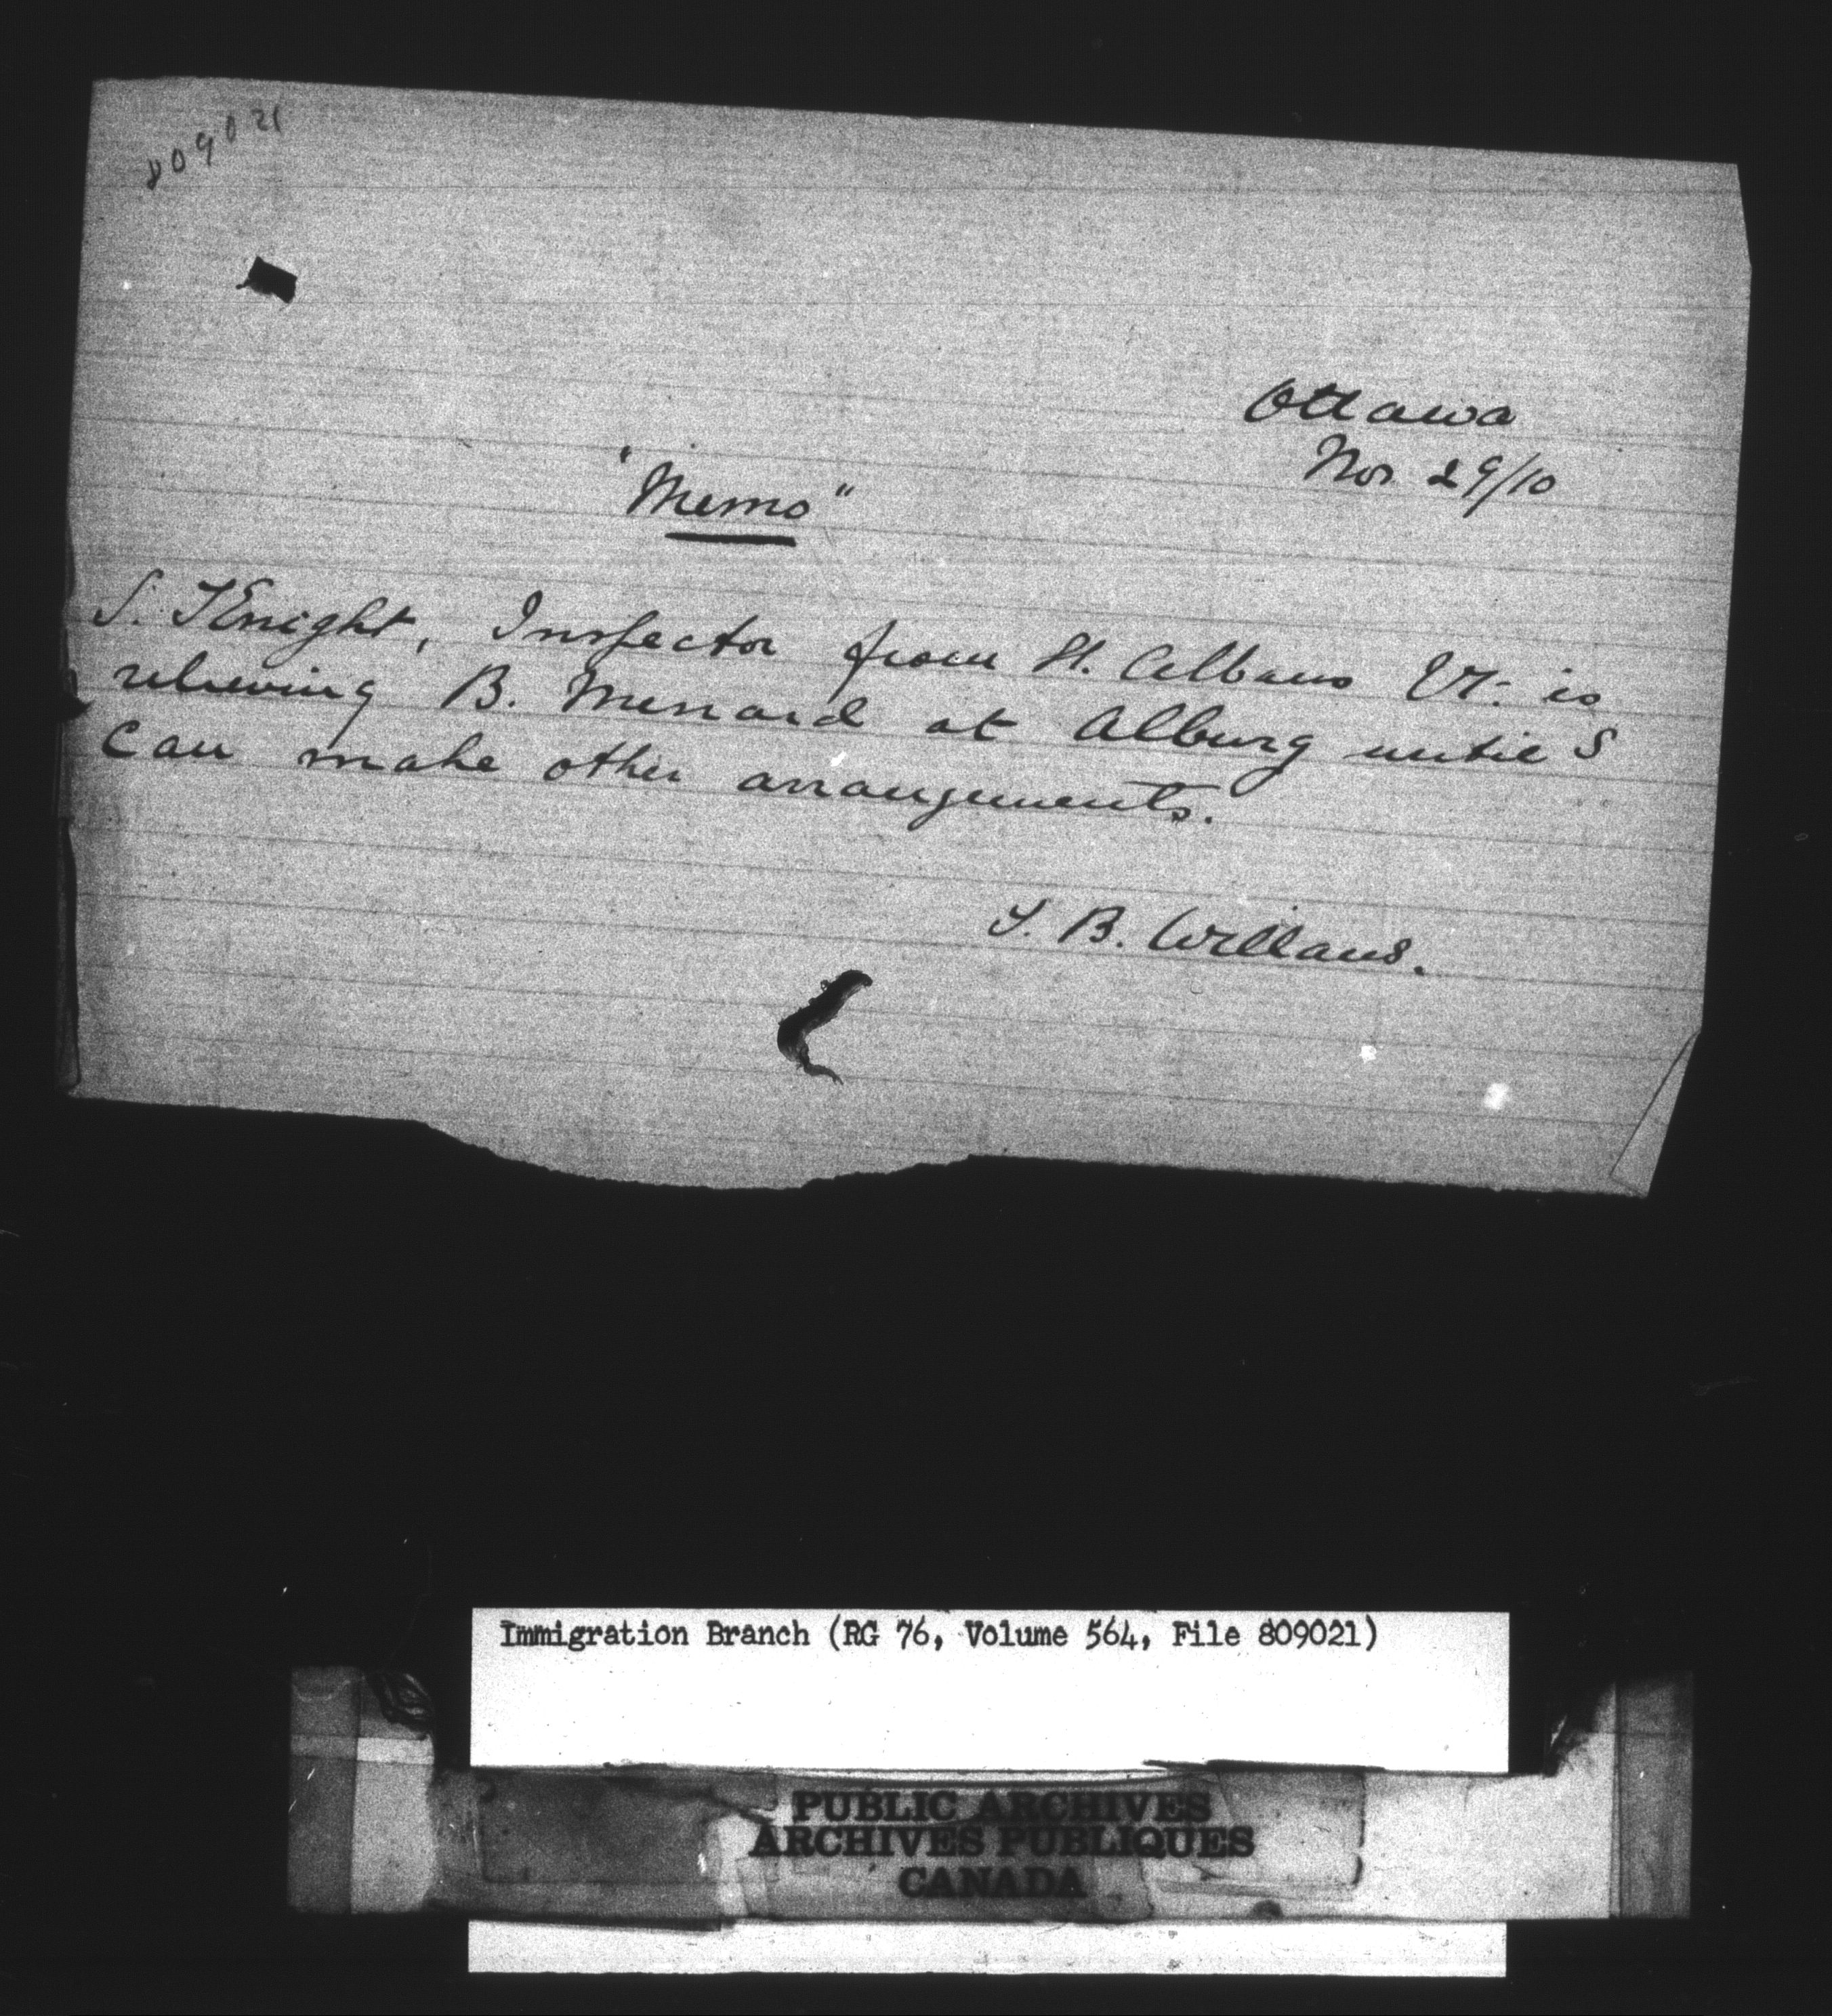 809021
Ottawa
Nov 29/10
"Memo"
S. Knight, Inspector from St. Albans Vt. is
relieving B. Menard at Alburg until I
can make other arrangements.
L. B. Willans.
Immigration Branch (RG 76, Volume 564, File 809021)
PUBLIC ARCHIVES
ARCHIVES PUBLIQUES
CANADA